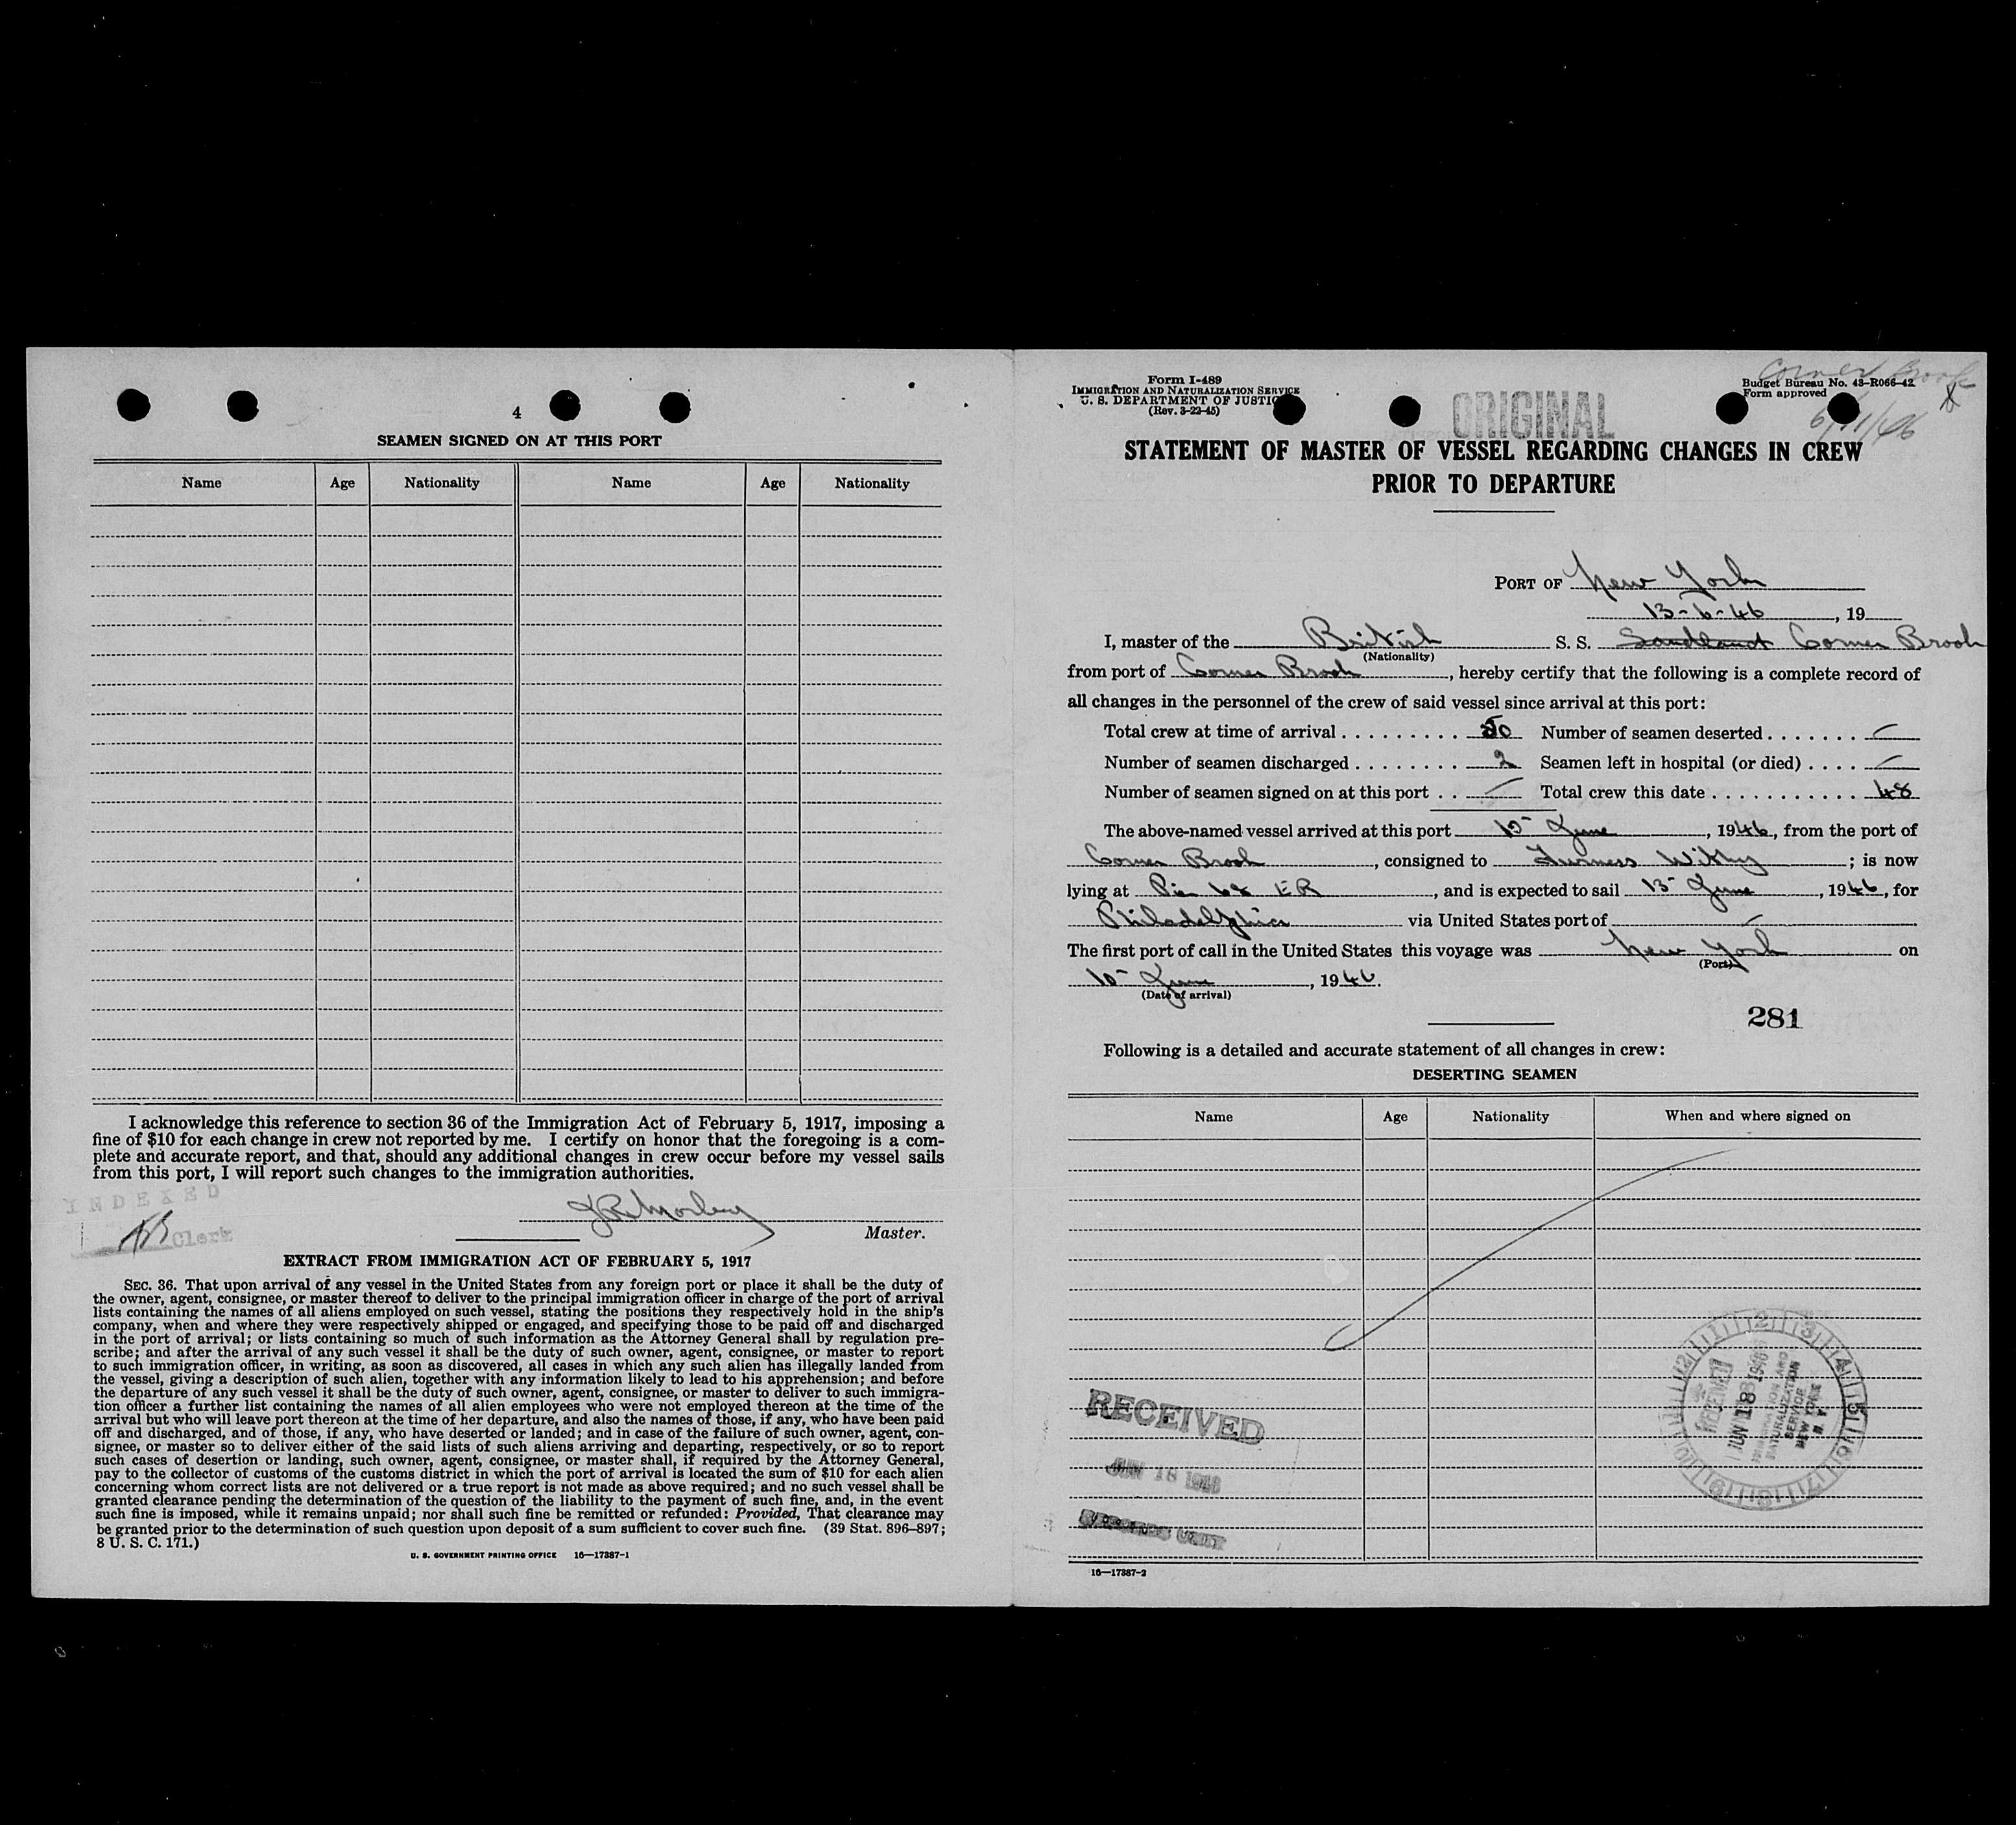 4
SEAMEN SIGNED ON AT THIS PORT
Name Age Nationality Name Age Nationality
I acknowledge this reference to section 36 of the Immigration Act of February 5, 1917, imposing a
fine of $10 for each change in crew not reported by me. I certify on honor that the foregoing is a com-
plete and accurate report, and that, should any additional changes in crew occur before my vessel sails
from this port, I will report such changes to the immigration authorities.
INDEXED
Clerk
Master.
EXTRACT FROM IMMIGRATION ACT OF FEBRUARY 5, 1917
SEC. 36. That upon arrival of any vessel in the United States from any foreign port or place it shall be the duty of
the owner, agent, consignee, or master thereof to deliver to the principal immigration officer in charge of the port of arrival
lists containing the names of all aliens employed on such vessel, stating the positions they respectively hold in the ship's
company, when and where they were respectively shipped or engaged, and specifying those to be paid off and discharged
in the port of arrival; or lists containing so much of such information as the Attorney General shall by regulation pre-
scribe; and after the arrival of any such vessel it shall be the duty of such owner, agent, consignee, or master to report
to such immigration officer, in writing, as soon as discovered, all cases in which any such alien has illegally landed from
the vessel, giving a description of such alien, together with any information likely to lead to his apprehension; and before
the departure of any such vessel it shall be the duty of such owner, agent, consignee, or master to deliver to such immigra-
tion officer a further list containing the names of all alien employees who were not employed thereon at the time of the
arrival but who will leave port thereon at the time of her departure, and also the names of those, if any, who have been paid
off and discharged, and of those, if any, who have deserted or landed; and in case of the failure of such owner, agent, con-
signee, or master so to deliver either of the said lists of such aliens arriving and departing, respectively, or so to report
such cases of desertion or landing, such owner, agent, consignee, or master shall, if required by the Attorney General,
pay to the collector of customs of the customs district in which the port of arrival is located the sum of $10 for each alien
concerning whom correct lists are not delivered or a true report is not made as above required; and no such vessel shall be
granted clearance pending the determination of the question of the liability to the payment of such fine, and, in the event
such fine is imposed, while it remains unpaid; nor shall such fine be remitted or refunded: Provided, That clearance may
be granted prior to the determination of such question upon deposit of a sum sufficient to cover such fine. (39 Stat. 896–897;
8 U. S. C. 171.)
U. S. GOVERNMENT PRINTING OFFICE 16—17387-1
Form I-489
IMMIGRATION AND NATURALIZATION SERVICE
U. S. DEPARTMENT OF JUSTICE
(Rev. 3-22-45)
ORIGINAL
Corner Brook
Budget Bureau No. 43-R066-42
Form approved
6/11/46
X
STATEMENT OF MASTER OF VESSEL REGARDING CHANGES IN CREW
PRIOR TO DEPARTURE
PORT OF New York
13-6-46, 19
I, master of the British S. S. Corner Brook
(Nationality)
from port of Corner Brook, hereby certify that the following is a complete record of
all changes in the personnel of the crew of said vessel since arrival at this port:
Total crew at time of arrival . . . . . . . . . 50 Number of seamen deserted . . . . . . . —
Number of seamen discharged . . . . . . . . 2 Seamen left in hospital (or died) . . . . —
Number of seamen signed on at this port . . — Total crew this date . . . . . . . . . . . . 48
The above-named vessel arrived at this port 10 June, 1946, from the port of
Corner Brook, consigned to Furness Withy; is now
lying at Pier ER, and is expected to sail 13 June, 1946, for
Philadelphia via United States port of —
The first port of call in the United States this voyage was New York on
(Port)
10 June, 1946.
(Date of arrival)
281
Following is a detailed and accurate statement of all changes in crew:
DESERTING SEAMEN
Name Age Nationality When and where signed on
RECEIVED
JUN 18 1946
RECORDS UNIT
RECEIVED
JUN 18 1946
IMMIGRATION AND
NATURALIZATION
SERVICE
NEW YORK
N. Y.
16—17387-2